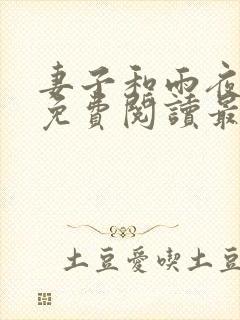 妻子和雨夜
免費閱讀最
土豆愛喫土豆